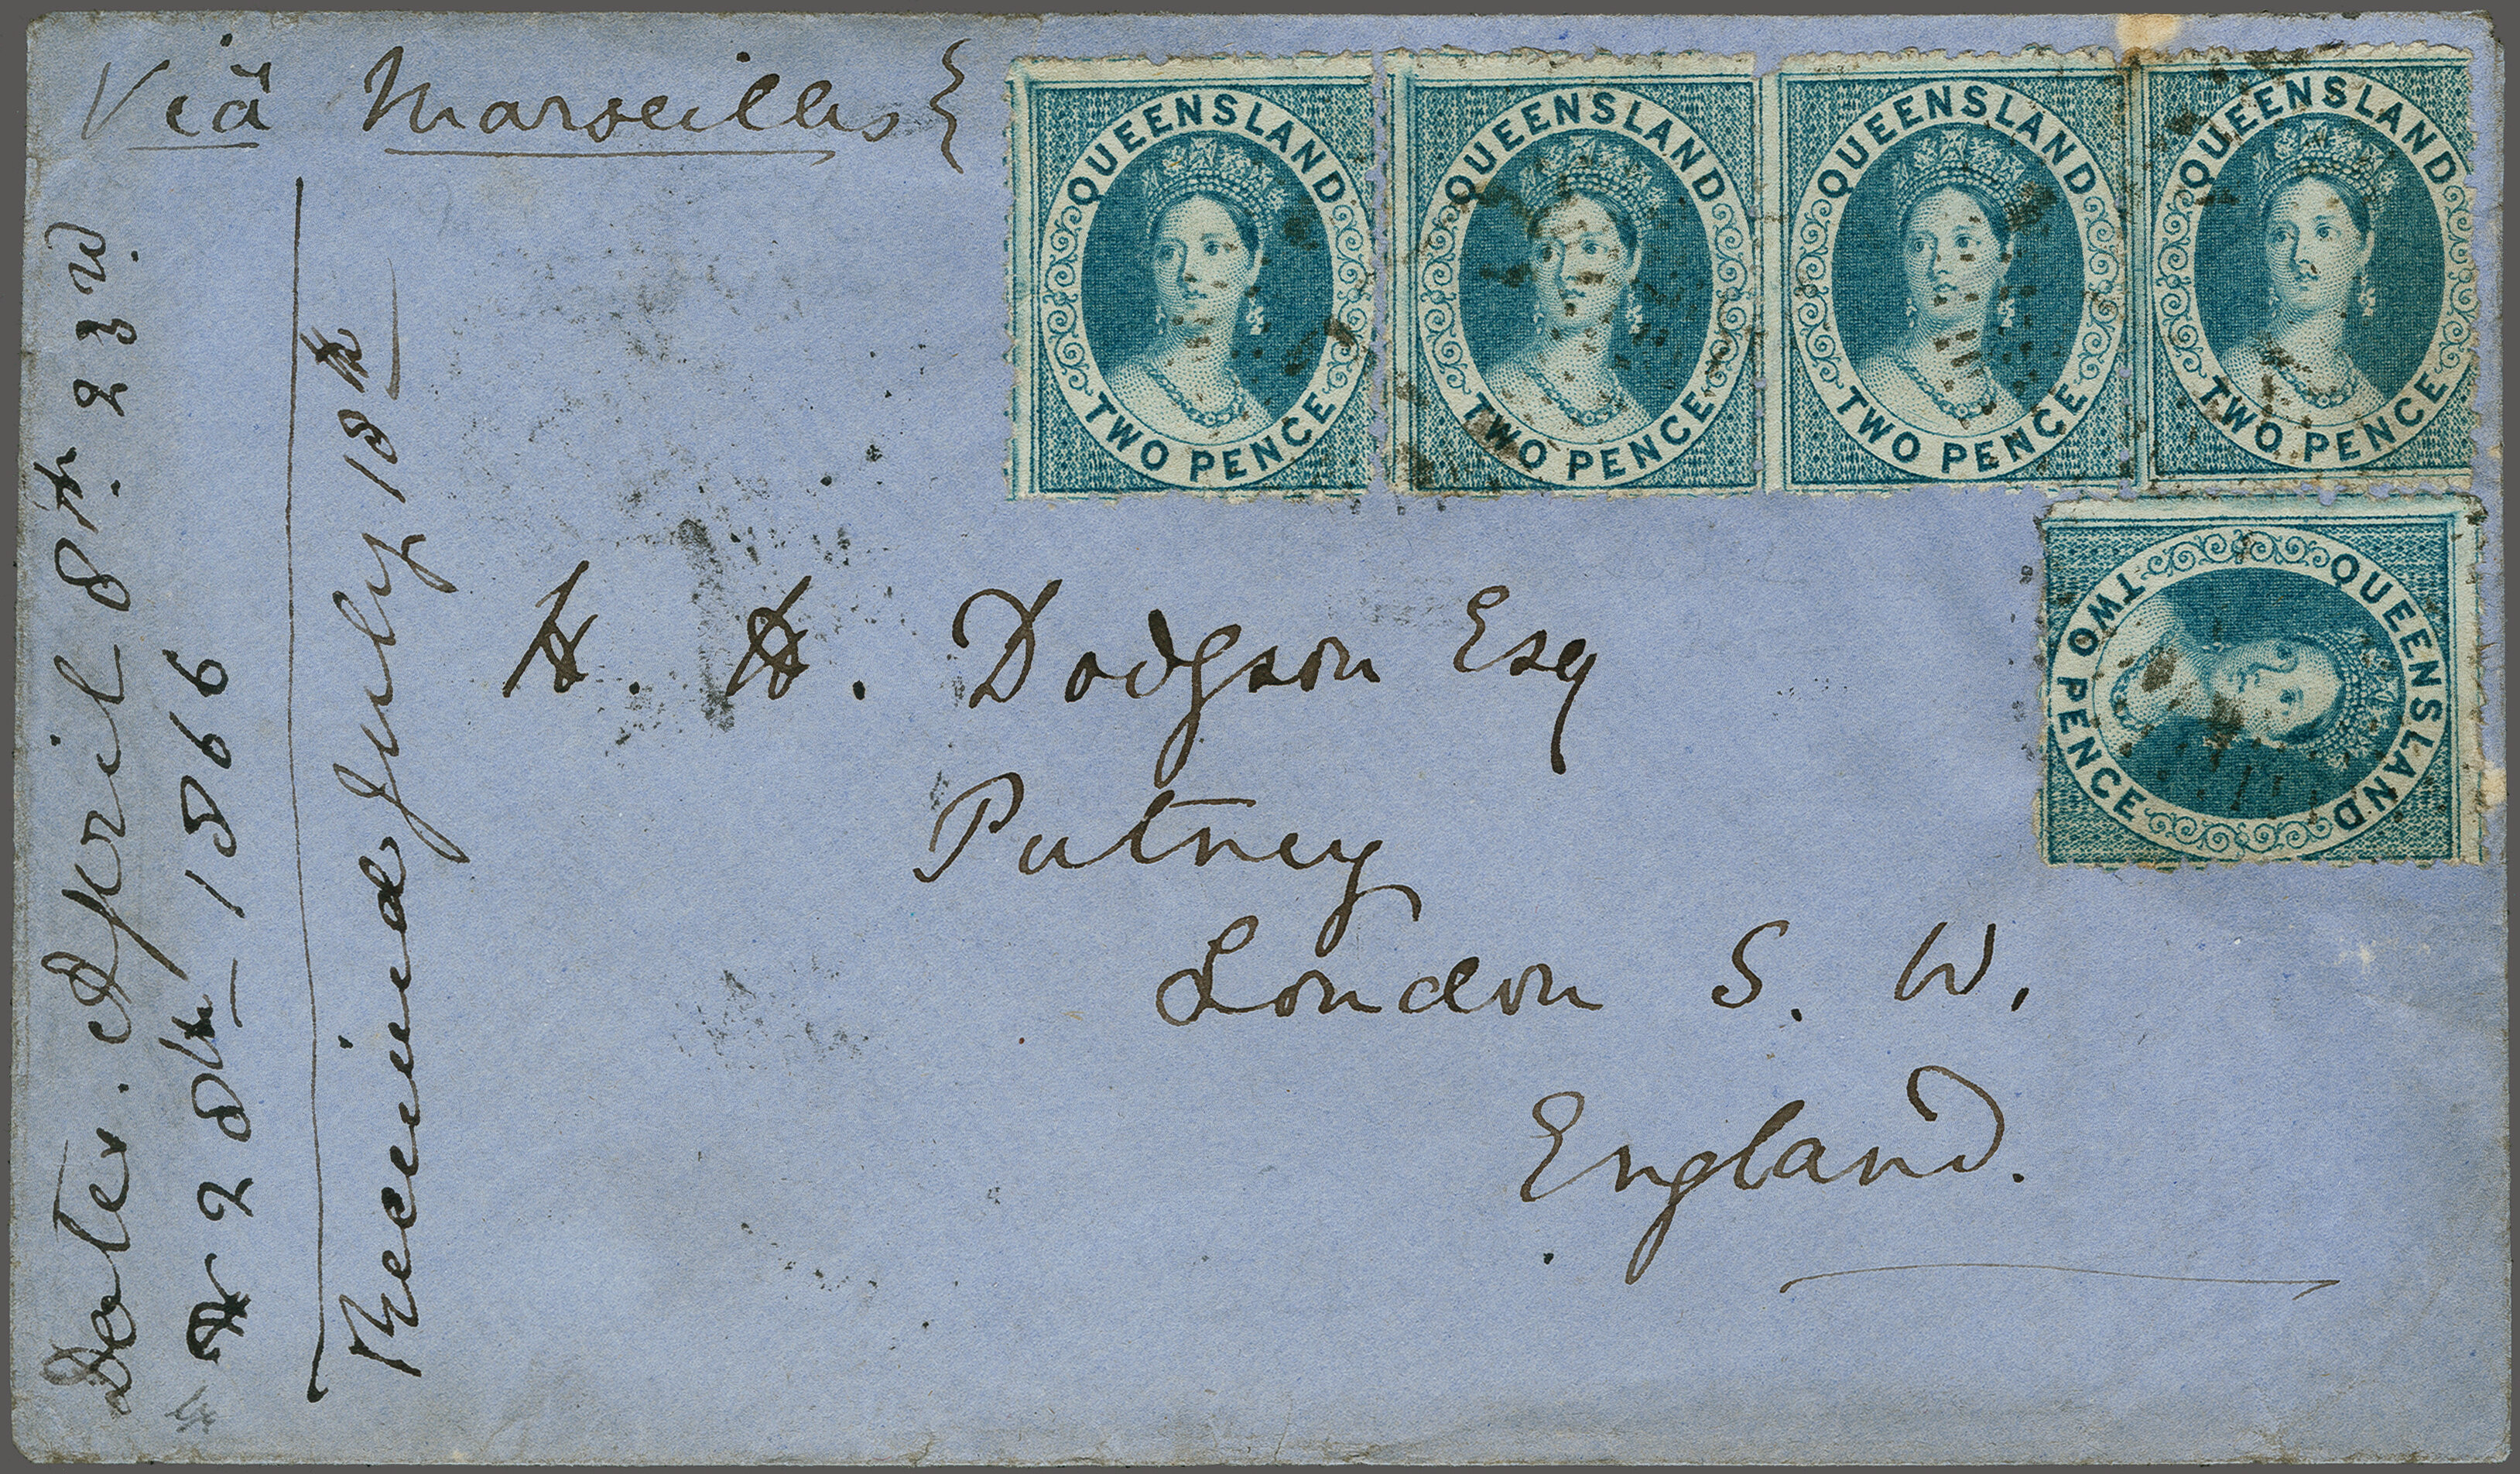 Via Marseilles
QUEENSLAND
TWO PENCE
QUEENSLAND
TWO PENCE
QUEENSLAND
TWO PENCE
QUEENSLAND
TWO PENCE
QUEENSLAND
TWO PENCE
H. H. Dodgson Esq
Putney
London S. W.
England.
Dates. April 8th. 23rd.
28th 1866
Received July 18th